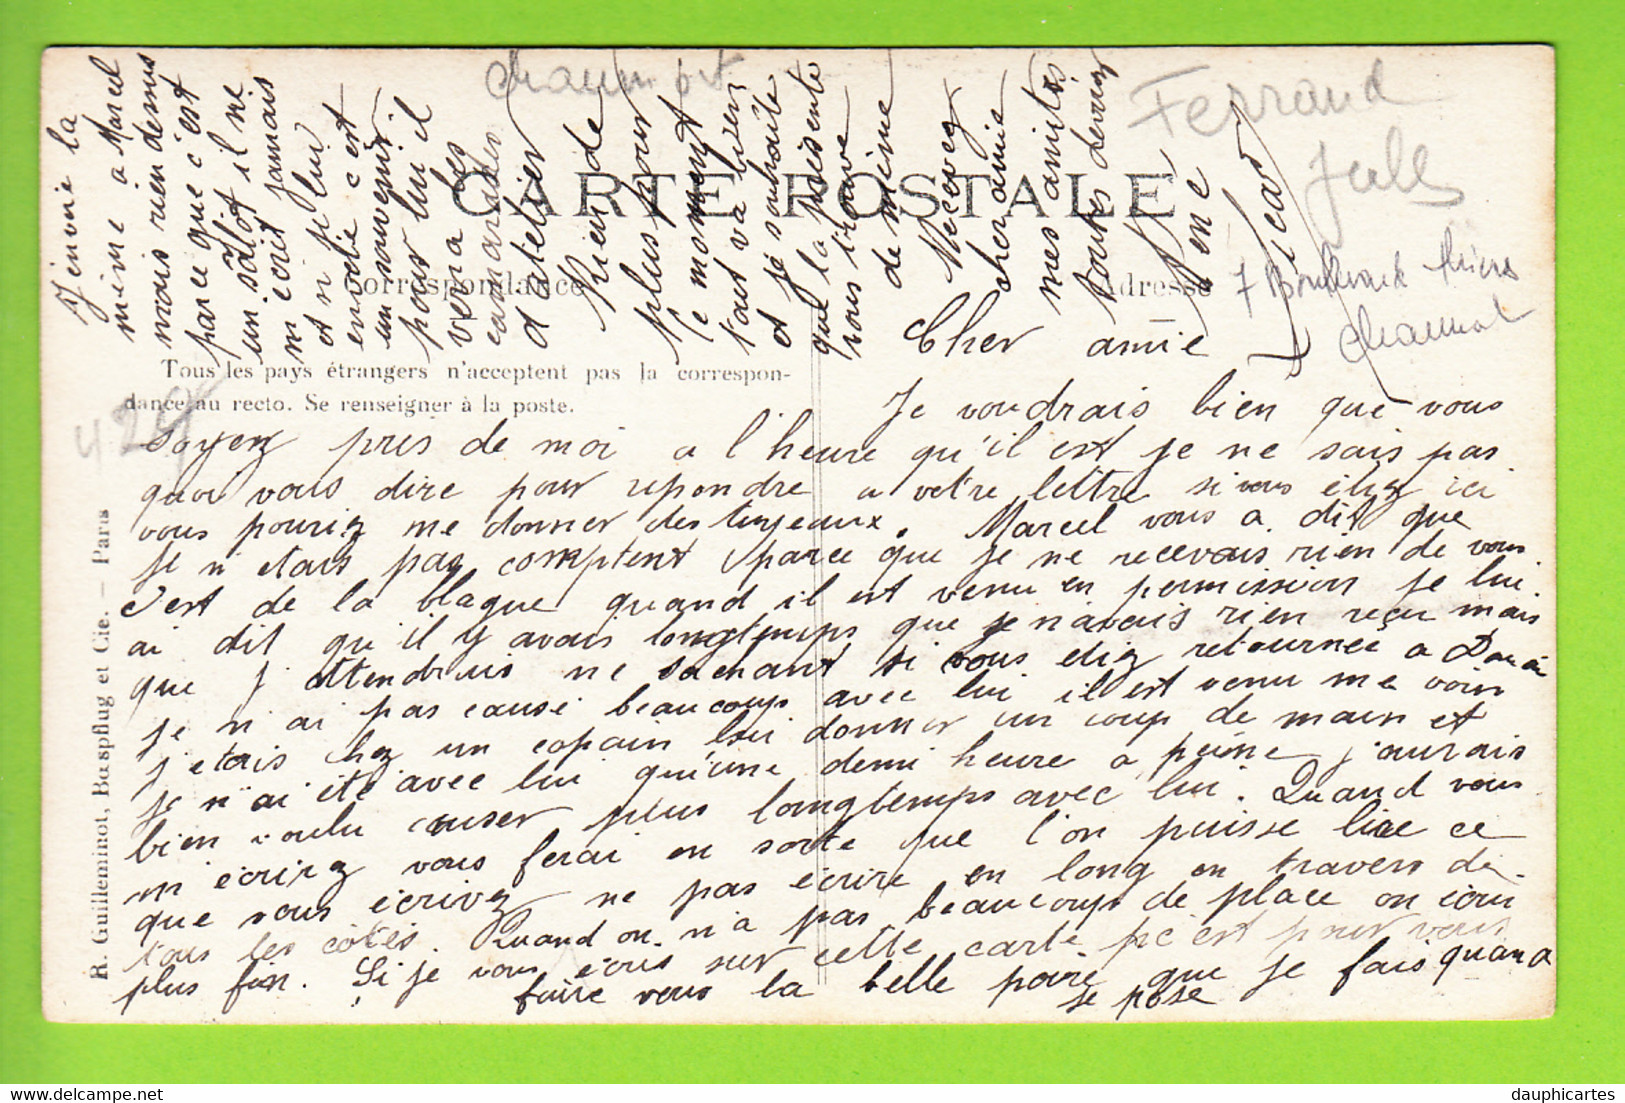 CARTE POSTALE
Correspondance
Adresse
Tous les pays étrangers n'acceptent pas la correspon-
dance au recto. Se renseigner à la poste.
R. Guilleminot, Bœspflug et Cie. — Paris
429
Chaumont
Ferrand
Jules
7 Boulevard thiers
Chaumont
Cher amie
Je voudrais bien que vous
soyez pres de moi a l'heure qu'il est je ne sais pas
quoi vous dire pour repondre a votre lettre si vous étiez ici
vous pouriez me donner des tuyeaux. Marcel vous a dit que
je n etais pas comptent parce que je ne recevais rien de vous
c'est de la blague quand il est venu en permission je lui
ai dit qu'il y avais longtemps que je n'avais rien reçu mais
que j attendrais ne sachant si vous etiez retournée a Douai
je n'ai pas causé beaucoup avec lui il est venu me voir
j'etais chez un copain lui donner un coup de main et
je n'ai été avec lui qu'une demi heure a peine j'aurais
bien voulu causer plus longtemps avec lui. Quand vous
m'écrirez vous ferai en sorte que l'on puisse lire ce
que vous écrivez ne pas écrire en long en travers de
tous les côtés. Quand on n'a pas beaucoup de place on écrit
plus fin. Si je vous écris sur cette carte c'est pour vous
faire vous la belle poire que je fais quand
je pose
J'envoie la
même a Marcel
mais rien dessus
parce que c'est
un salot il ne
m'écrit jamais
et si lui
envoie c'est
un souvenir
pour lui il
verra les
camarades
d'atelier
Rien de
plus pour
le moment
tout va bien
et je souhaite
que la présente
vous trouve
de même
Recevez
cher amie
mes amitiés
toutes
René
Picard